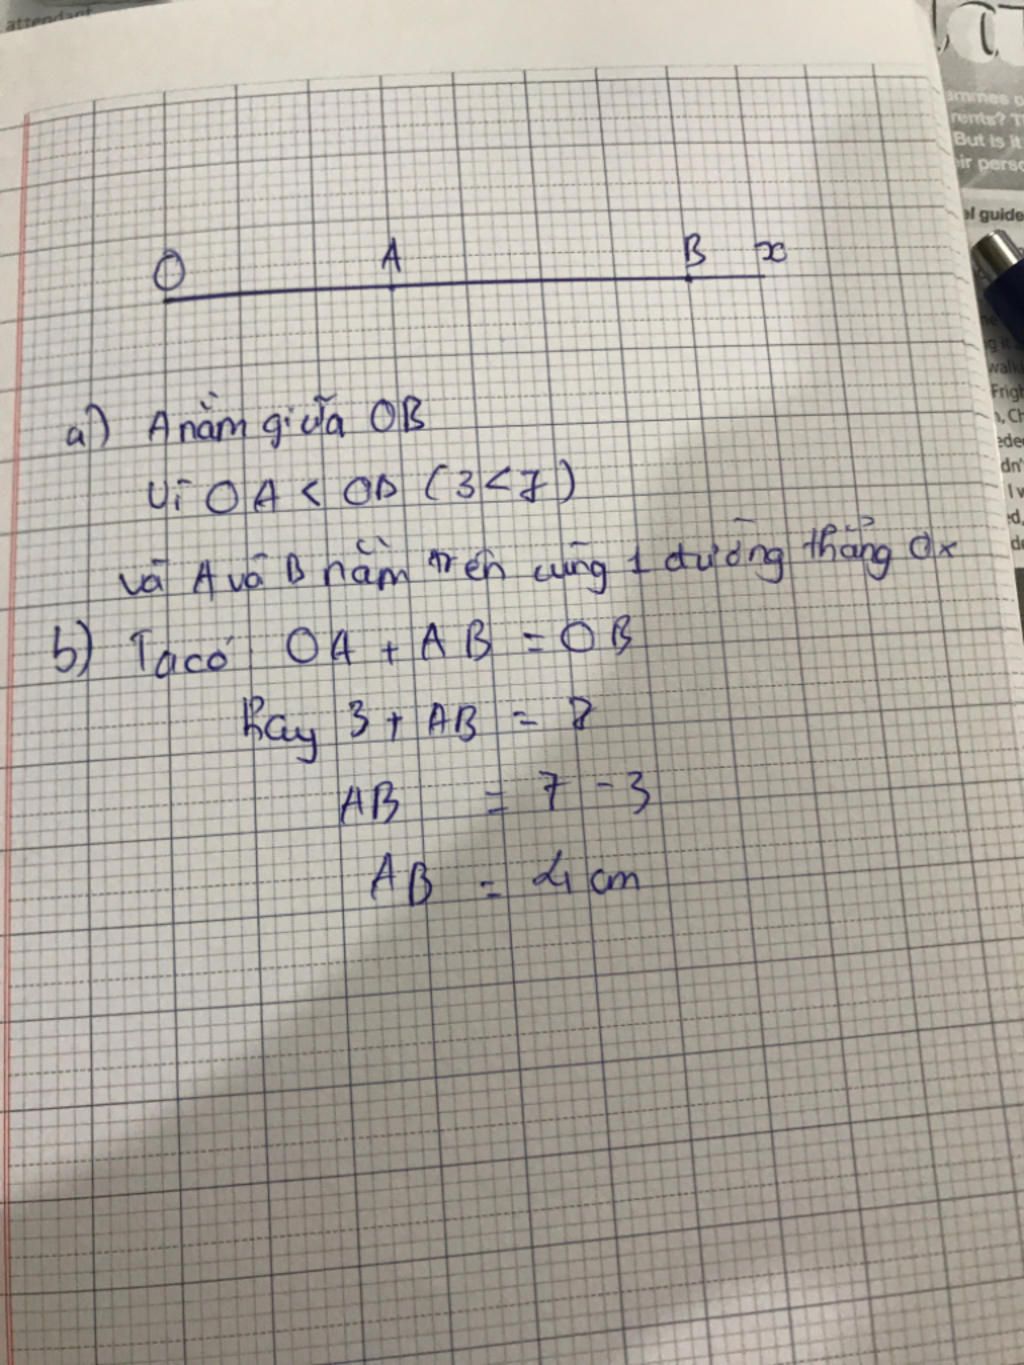 attendant
ammes o
rents? T
But is it
eir perso
el guide
walk
Frigh
O A B x
a) A nằm giữa OB
Vì OA < OB (3<7)
và A và B nằm trên cùng 1 đường thẳng Ox
b) Ta có OA + AB = OB
Hay 3 + AB = 7
AB = 7 - 3
AB = 4 cm